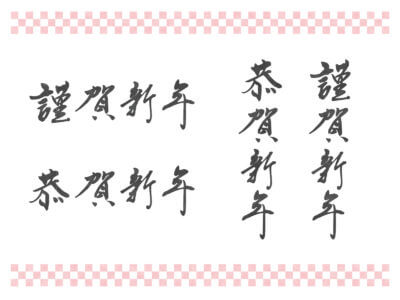 謹賀新年
恭賀新年
謹賀新年
恭賀新年